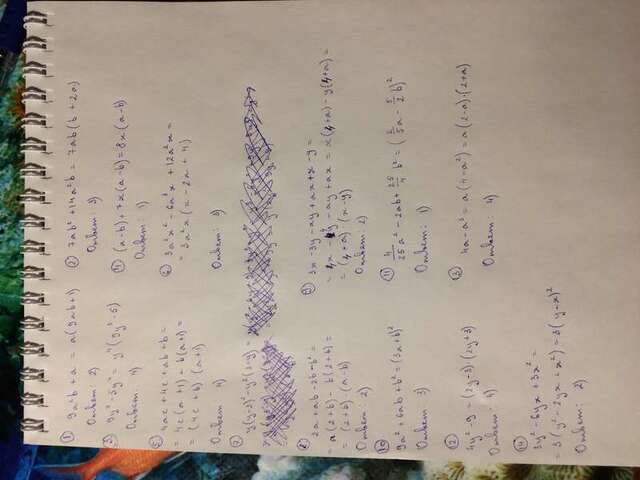 1 9a²b + a = a(9ab+1)
Ответ: 2)
2 7ab² + 14a²b = 7ab(b + 2a)
Ответ: 3)
3
Ответ: 4)
4 (a-b) + 7x(a-b) = 8x(a-b)
Ответ: 1)
5
4ac + 4c + ab + b =
= 4c(a+1) + b(a+1) =
= (4c + b)·(a+1)
Ответ: 4)
6
3a²x² - 6a³x + 12a²x =
= 3a²x(x - 2a + 4)
Ответ: 3)
7
y(y-3)² - y²(3-y) =
8
2a + ab - 2b - b² =
= a(2+b) - b(2+b) =
= (2+b)·(a-b)
Ответ: 2)
9
3x - 3y - ay + ax + x - y =
= 4x - 4y - ay + ax = x(4+a) - y(4+a) =
= (4+a)·(x-y)
Ответ: 2)
10
9a² + 6ab + b² = (3a+b)²
Ответ: 3)
11
4/25 a² - 2ab + 25/4 b² = (2/5 a - 5/2 b)²
Ответ: 1)
12
4y² - 9 = (2y-3)·(2y+3)
Ответ: 4)
13
4a - a³ = a(4-a²) = a(2-a)·(2+a)
Ответ: 4)
14
3y² - 6yx + 3x² =
= 3(y² - 2yx + x²) = 3(y-x)²
Ответ: 2)